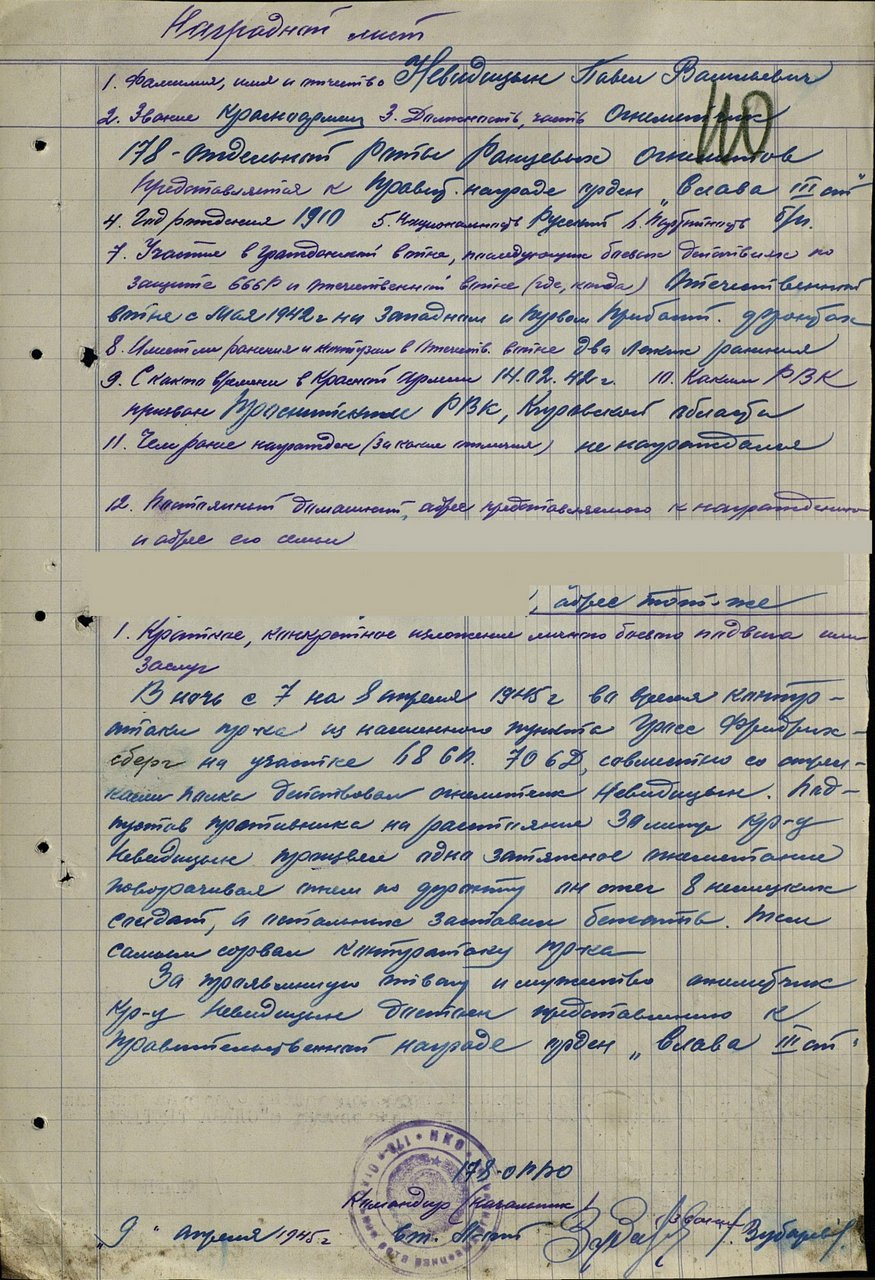 Наградной лист
1. Фамилия, имя и отчество Невидицын Павел Васильевич
2. Звание Красноармеец 3. Должность, часть Огнеметчик
110
178-отдельной Роты Ранцевых огнеметов
Представляется к правит. награде орден „Слава III ст"
4. Год рождения 1910 5. Национальность Русский 6. Партийность б/п.
7. Участие в гражданской войне, последующих боевых действиях по
защите СССР и отечественной войне (где, когда) Отечественной
войне с Мая 1942 г на Западном и Первом Прибалт. фронтах
8. Имеет ли ранения и контузии в Отечеств. войне два легких ранения
9. С какого времени в Красной Армии 14.02.42 г. 10. Каким РВК
призван РВК, Кировской области
11. Чем ранее награжден (за какие отличия) не награждался
12. Постоянный домашний адрес представляемого к награждению
и адрес его семьи
, адрес тот-же
1. Краткое, конкретное изложение личного боевого подвига или
заслуг
В ночь с 7 на 8 апреля 1945 г во время контр-
атаки пр-ка из населенного пункта Гросс Фридрих-
сберг на участке 68 СП. 70 СД, совместно со стрел-
ками полка действовал огнеметчик Невидицын. Под-
пустив противника на расстояние 30 метр. кр-ц
Невидицын произвел одно затяжное огнеметание
поворачивая огнем по фронту он сжег 8 немецких
солдат, а остальных заставил бежать. Тем
самым сорвал контратаку пр-ка
За проявленную отвагу и мужество огнеметчик
кр-ц Невидицын достоин представлению к
правительственной награде орден „Слава III ст"
178-ОРРО
Командир (Начальник)
„9" апреля 1945 г ст. л-нт (Зубарев)